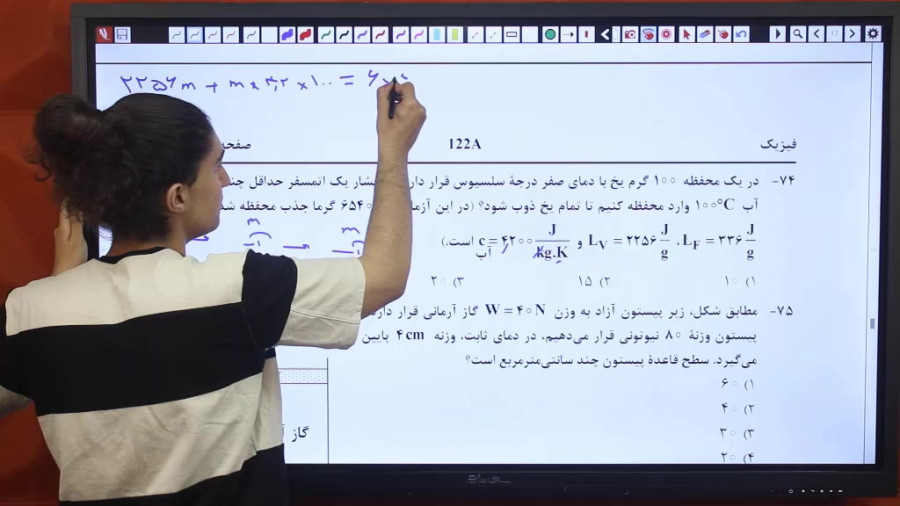 ۲۲۵۶m + m × ۴٫۲ × ۱۰۰ = ۶
فیزیک 122A صفحه
۷۴- در یک محفظه ۱۰۰ گرم یخ با دمای صفر درجهٔ سلسیوس قرار دارد. فشار یک اتمسفر حداقل چند
آب ۱۰۰°C وارد محفظه کنیم تا تمام یخ ذوب شود؟ (در این ۶۵۴۰ گرما جذب محفظه
m m
L_F = ۳۳۶ J/g ، L_V = ۲۲۵۶ J/g و c آب = ۴۲۰۰ J/kg.K است.)
۱) ۱۰ ۲) ۱۵ ۳) ۲۰
۷۵- مطابق شکل، زیر پیستون آزاد به وزن W = ۴۰ N گاز آرمانی قرار دارد
پیستون وزنهٔ ۸۰ نیوتونی قرار می‌دهیم، در دمای ثابت، وزنه ۴ cm پایین
می‌گیرد. سطح قاعدهٔ پیستون چند سانتی‌مترمربع است؟
۱) ۶۰
۲) ۴۰
۳) ۳۰
۴) ۲۰
گاز